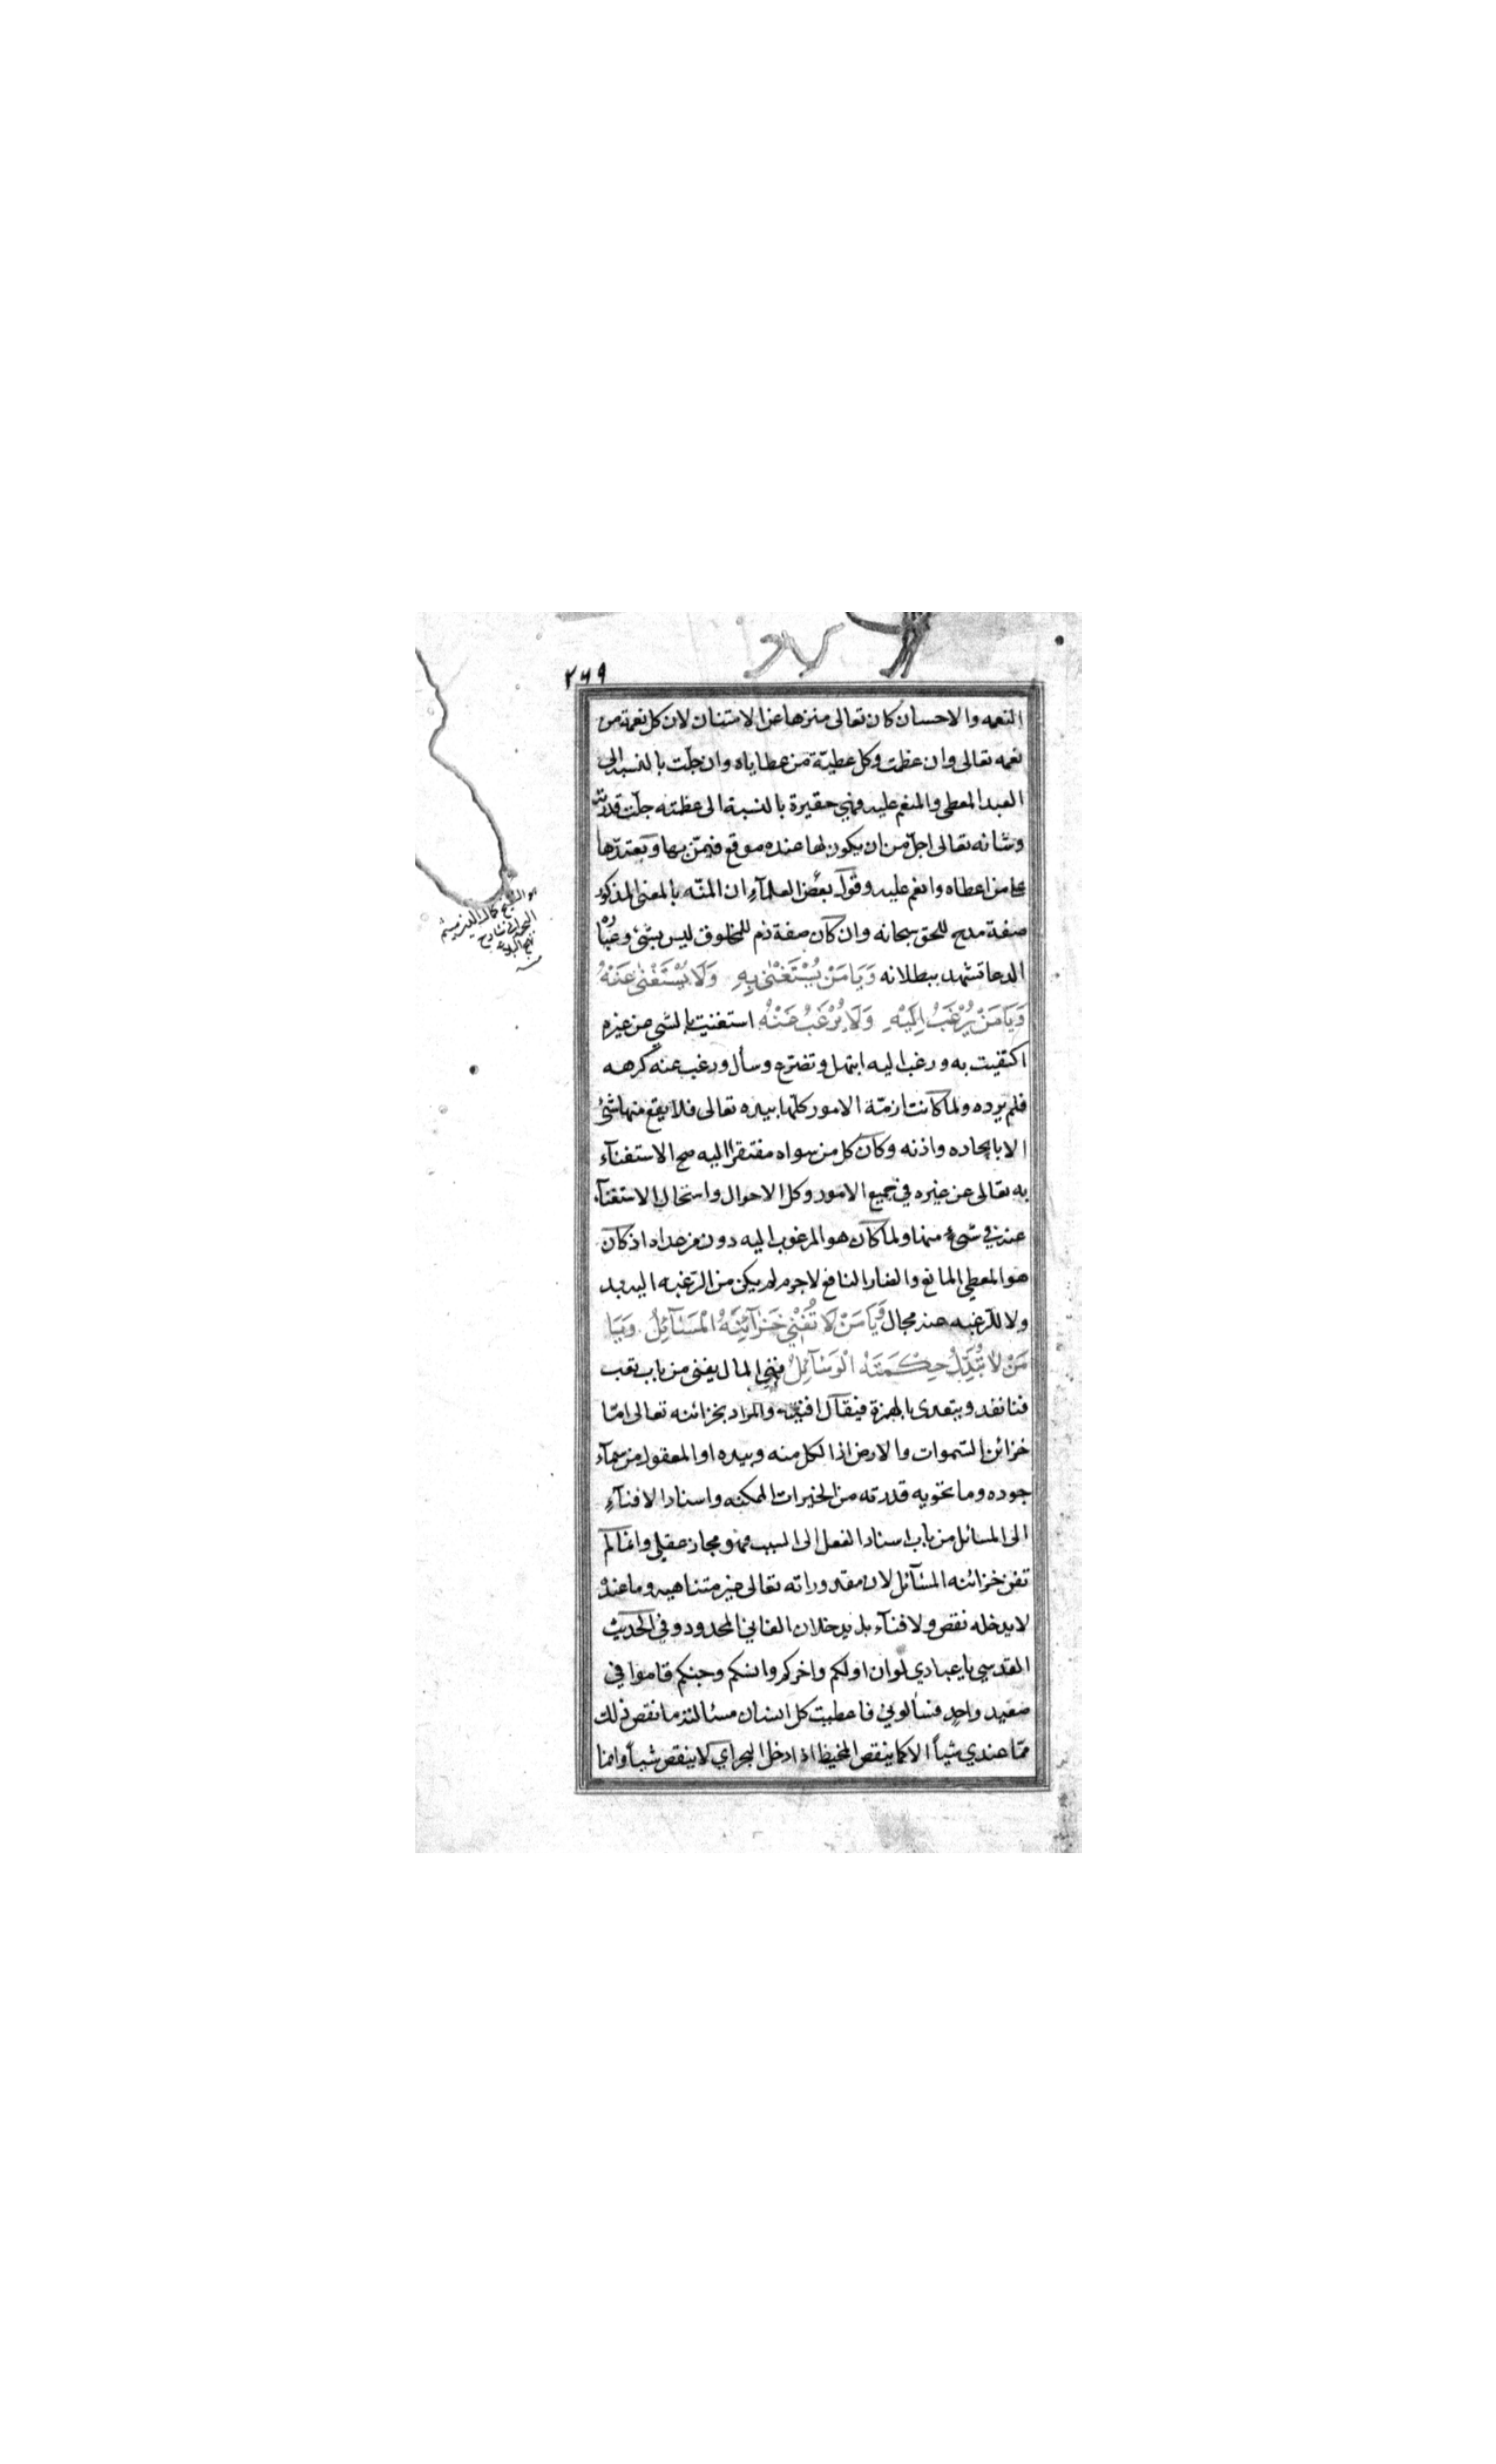 ٢٦٩
النعمه والاحسان كان تعالى منزها عن الامتنان لان كل نعمة من
نعمه تعالى وان عظمت وكل عطيّة من عطاياه وان جلّت بالنسبه الى
العبد المعطى والمنعم عليه فهي حقيرة بالنسبة الى عظمته جلّت قدرته
وشانه تعالى اجلّ من ان يكون لها عنده موقع فيمنّ بها ويعتدّها
على من اعطاه وانعم عليه وقول بعض العلمآء ان المنّه بالمعنى المذكور
صفة مدح للحق سبحانه وان كان صفة ذم للمخلوق ليس بشئ وعباره
الدعا تشهد ببطلانه وَيَا مَنْ يُسْتَغْنىٰ بِهِ وَلَا يُسْتَغْنىٰ عَنْهُ
وَيَا مَنْ يُرْغَبُ اِلَيْهِ وَلَا يُرْغَبُ عَنْهُ استغنيت بالشي عن غيره
اكتفيت به ورغب اليه ابتهل وتضرّع وسأل ورغب عنه كرهه
فلم يرده ولما كانت ازمّة الامور كلّها بيده تعالى فلا يقع منها شئ
الا بايجاده واذنه وكان كل من سواه مفتقرا اليه صح الاستغنآء
به تعالى عن غيره في جميع الامور وكل الاحوال واستحال الاستغنآء
عنه في شئ منها ولما كان هو المرغوب اليه دون من عداه اذ كان
هو المعطي المانع والضار النافع لا جرم لم يكن من الرّغبه اليه بد
ولا للرّغبه عنه مجال وَيَا مَنْ لَا تُفْنِي خَزَآئِنَهُ الْمَسَآئِلُ وَيَا
مَنْ لَا تُبَدِّلُ حِكْمَتَهُ الْوَسَآئِلُ فني المال يفنى من باب تعب
فنا نفد ويتعدى بالهمزة فيقال افنيته والمراد بخزائنه تعالى امّا
خزائن السّموات والارض اذ الكل منه وبيده او المعقول من سمآء
جوده وما تحويه قدرته من الخيرات الممكنه واسناد الافنآء
الى المسائل من باب اسناد الفعل الى السبب فهو مجاز عقلي وانما لم
تفن خزائنه المسآئل لان مقدوراته تعالى غير متناهيه وما عنده
لا يدخله نقص ولا فنآء بل يدخلان الفاني المحدود وفي الحديث
القدسي يا عبادي لو ان اولكم واخركم وانسكم وجنكم قاموا في
صعيد واحد فسألوني فاعطيت كل انسان مسئالته ما نقص ذلك
ممّا عندي شيأ الا كما ينقص المخيط اذا دخل البحر اي لا ينقص شيأ وانما
هو الشيخ كمال الدين ميثم
البحراني شارح
نهج البلاغه